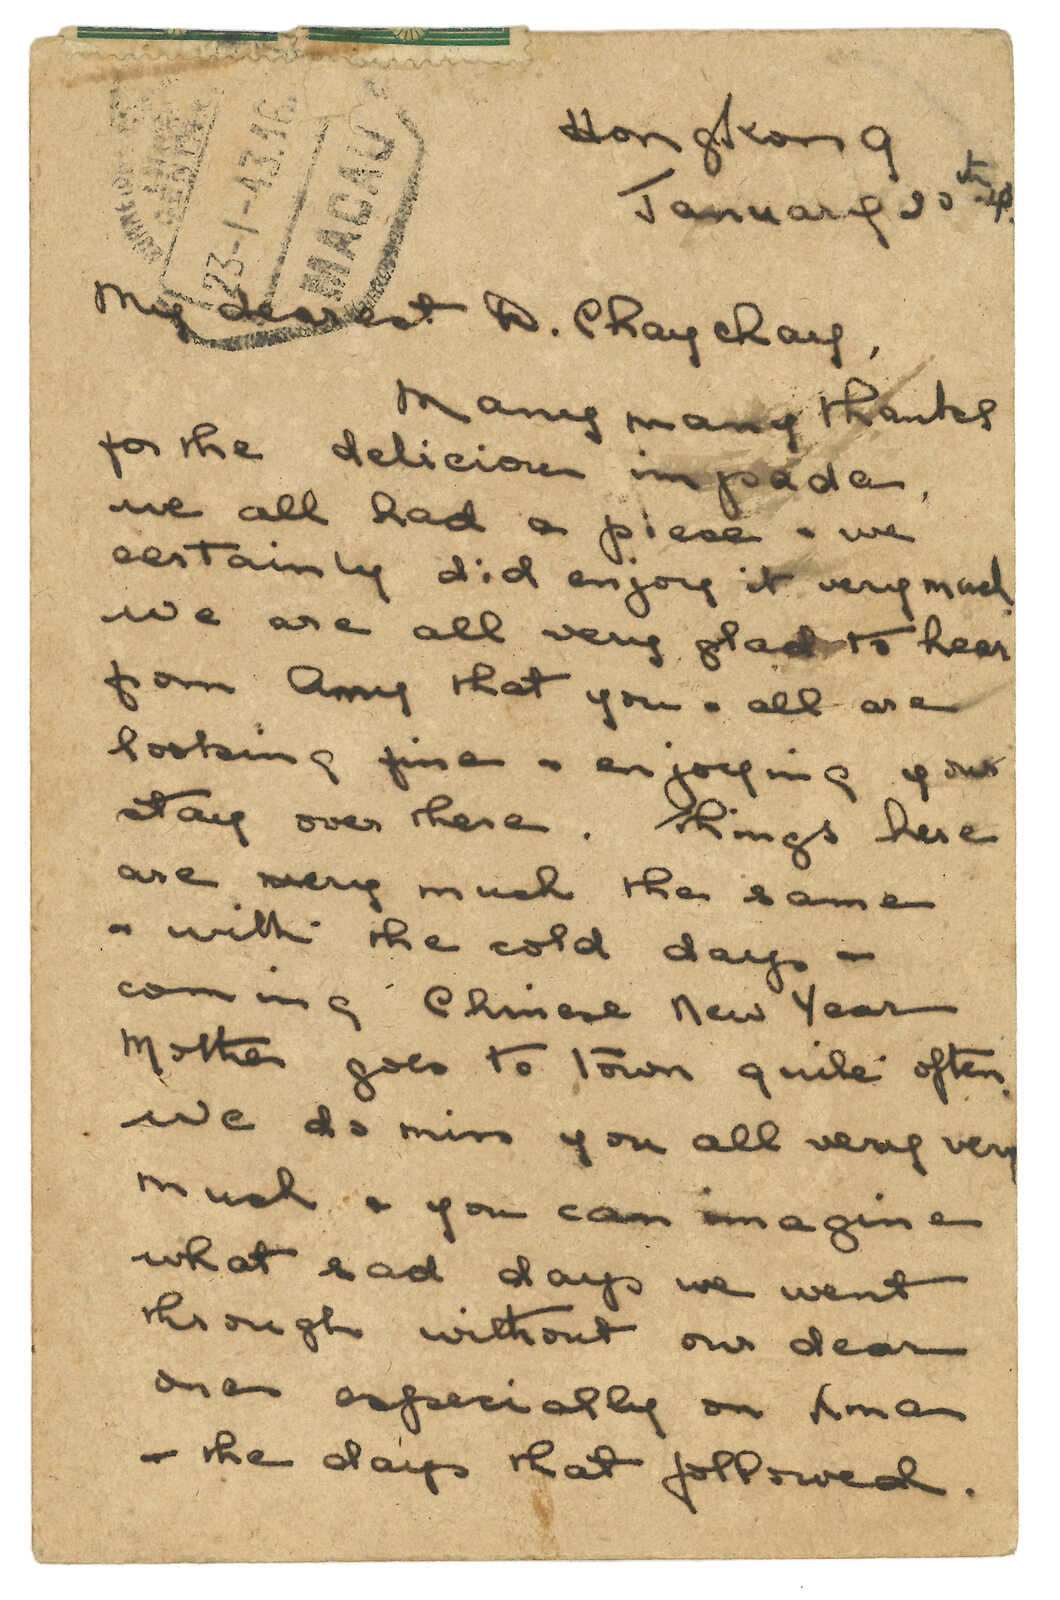 23-1-43.16
MACAU
Hongkong
January 20th
My dearest D. Chaychay,
Many many thanks
for the delicious impada,
we all had a piese & we
certainly did enjoy it very much.
We are all very glad to hear
from Amy that you & all are
looking fine & enjoying your
stay over there. Things here
are very much the same
& with the cold days &
coming Chinese New Year
Mother goes to town quite often.
We do miss you all very very
much & you can imagine
what sad days we went
through without our dear
ones especially on Xmas
& the days that followed.